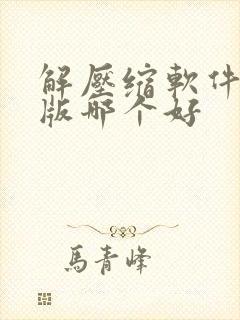 解壓缩軟件
版哪个好
馬青峰